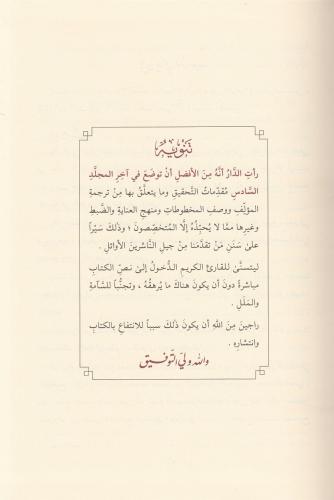 تَنْويهٌ
رأتِ الدَّارُ أنَّهُ مِنَ الأفضلِ أنْ توضَعَ في آخِرِ المجلَّدِ
السَّادسِ مُقدِّماتُ التَّحقيقِ وما يتعلَّقُ بها مِنْ ترجمةِ
المؤلِّفِ ووصفِ المخطوطاتِ ومنهجِ العنايةِ والضَّبطِ
وغيرِها ممَّا لا يُحبِّذُهُ إلَّا المُتخصِّصونَ ؛ وذلكَ سَيْراً
علىٰ سَنَنِ مَنْ تقدَّمَنا مِنْ جيلِ النَّاشرينَ الأوائلِ .
ليتسنَّىٰ للقارئِ الكريمِ الدُّخولُ إلىٰ نصِّ الكتابِ
مباشرةً دونَ أن يكونَ هناكَ ما يُرهقُهُ ، وتجنُّباً للسَّآمةِ
والمَلَلِ .
راجينَ مِنَ اللهِ أن يكونَ ذلكَ سبباً للانتفاعِ بالكتابِ
وانتشارِهِ .
والله وليّ التّوفيق